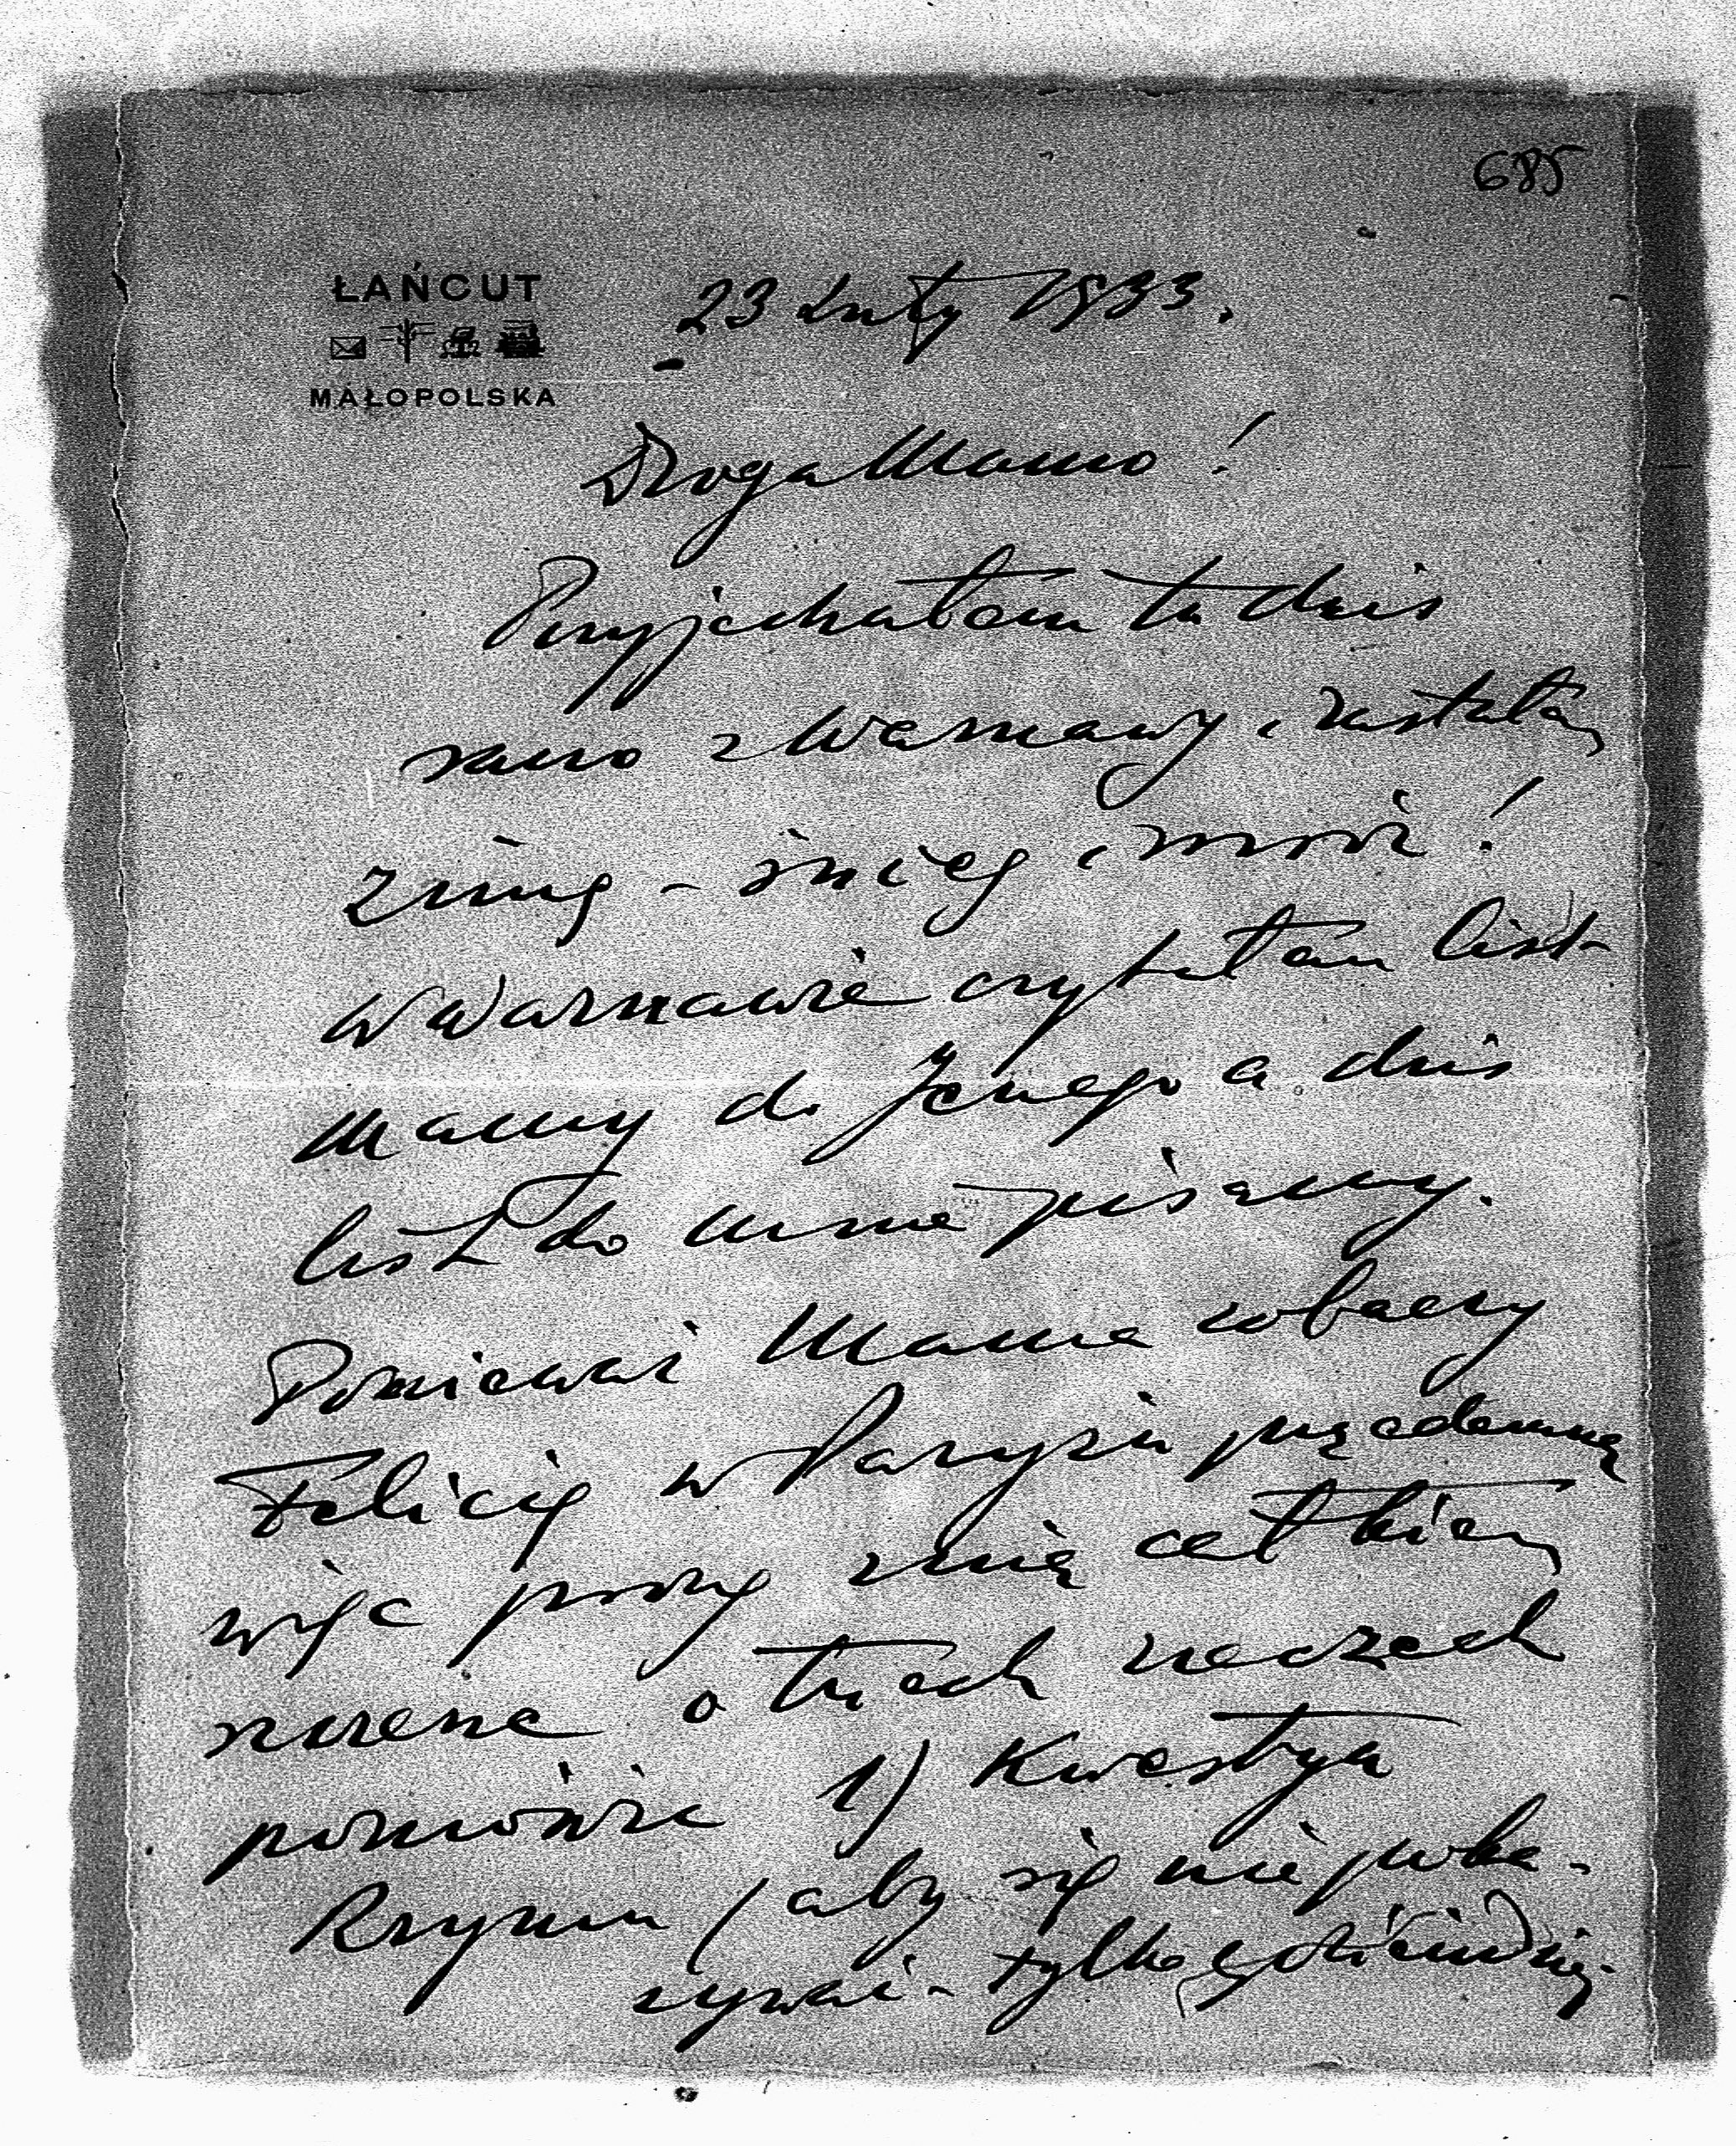 685
ŁAŃCUT
23 Luty 1933.
MAŁOPOLSKA
Droga Mamo!
Przyjechałem tu dziś
rano z Warszawy i zastałem
zimę – śnieg i mróz!
W Warszawie czytałem list
Mamy do Jerzego a dziś
list do mnie pisany.
Ponieważ Mama zobaczy
Felicię w Paryżu przedemną
więc proszę z nią całkiem
szczerze o trzech rzeczach
pomówić 1) Kwestya
Rzymu (aby się nie poka-
zywać – tylko